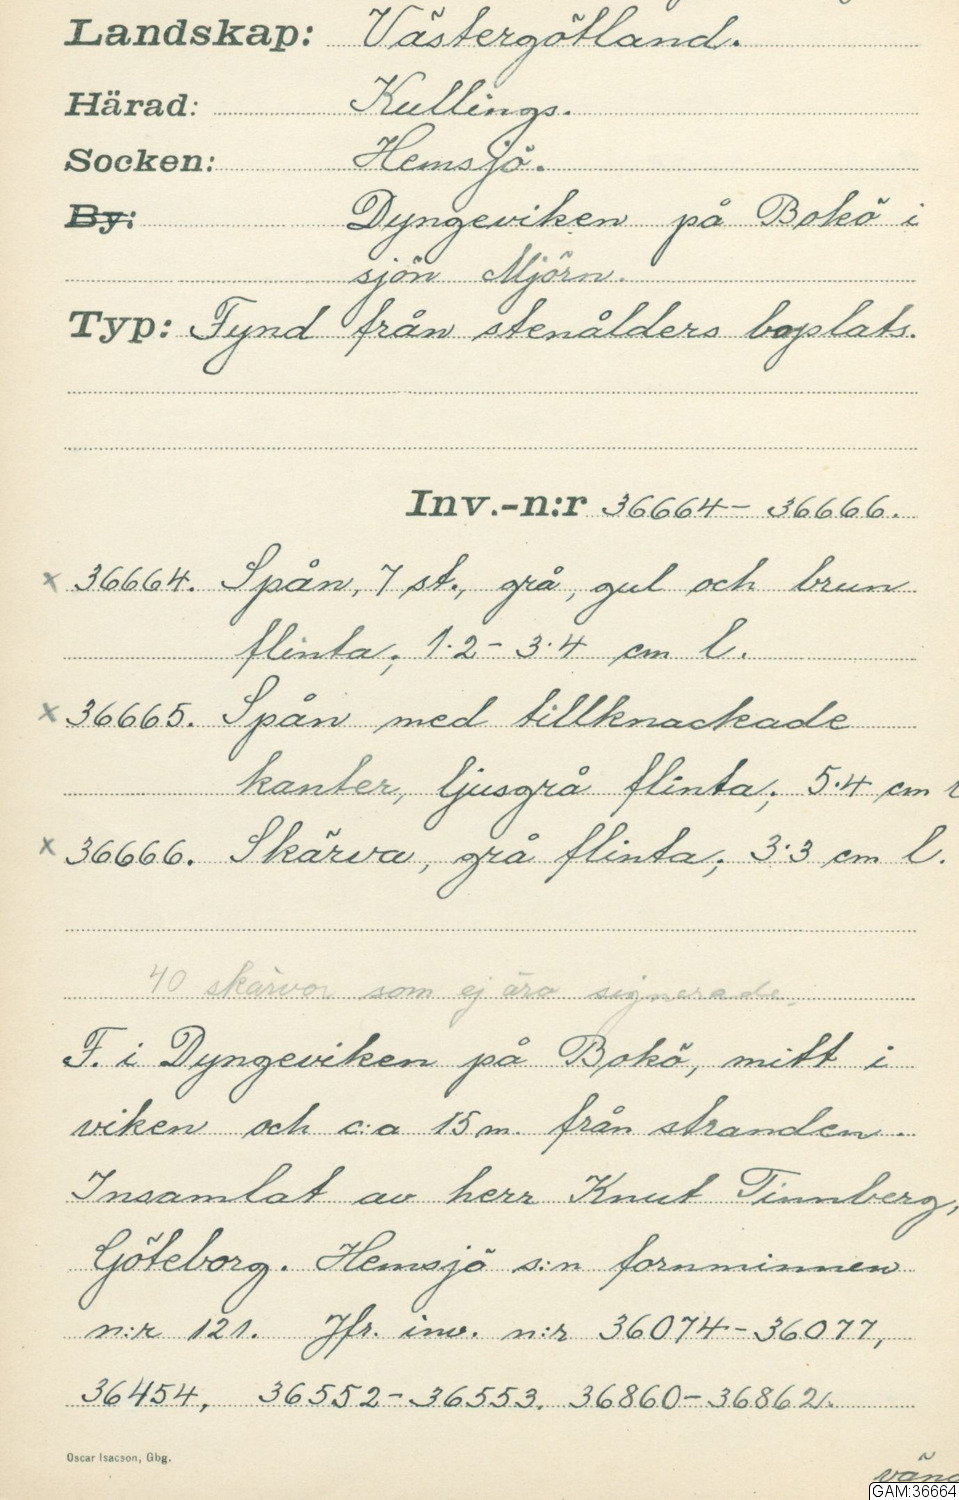 Landskap: Västergötland.
Härad: Kullings.
Socken: Hemsjö.
By: Dyngeviken på Bokö i
sjön Mjörn.
Typ: Fynd från stenålders boplats.
Inv.-n:r 36664-36666.
x 36664. Spån, 7 st., grå, gul och brun
flinta; 1·2-3·4 cm l.
x 36665. Spån med tillknackade
kanter, ljusgrå flinta; 5·4 cm
x 36666. Skärva, grå flinta; 3·3 cm l.
40 skärvor som ej äro signerade.
F. i Dyngeviken på Bokö, mitt i
viken och c:a 15 m. från stranden.
Insamlat av herr Knut Tinnberg,
Göteborg. Hemsjö s:n fornminnen
n:r 121. Jfr. inv. n:r 36074-36077,
36454, 36552-36553. 36860-36862.
Oscar Isacson, Gbg.
vänd
GAM:36664